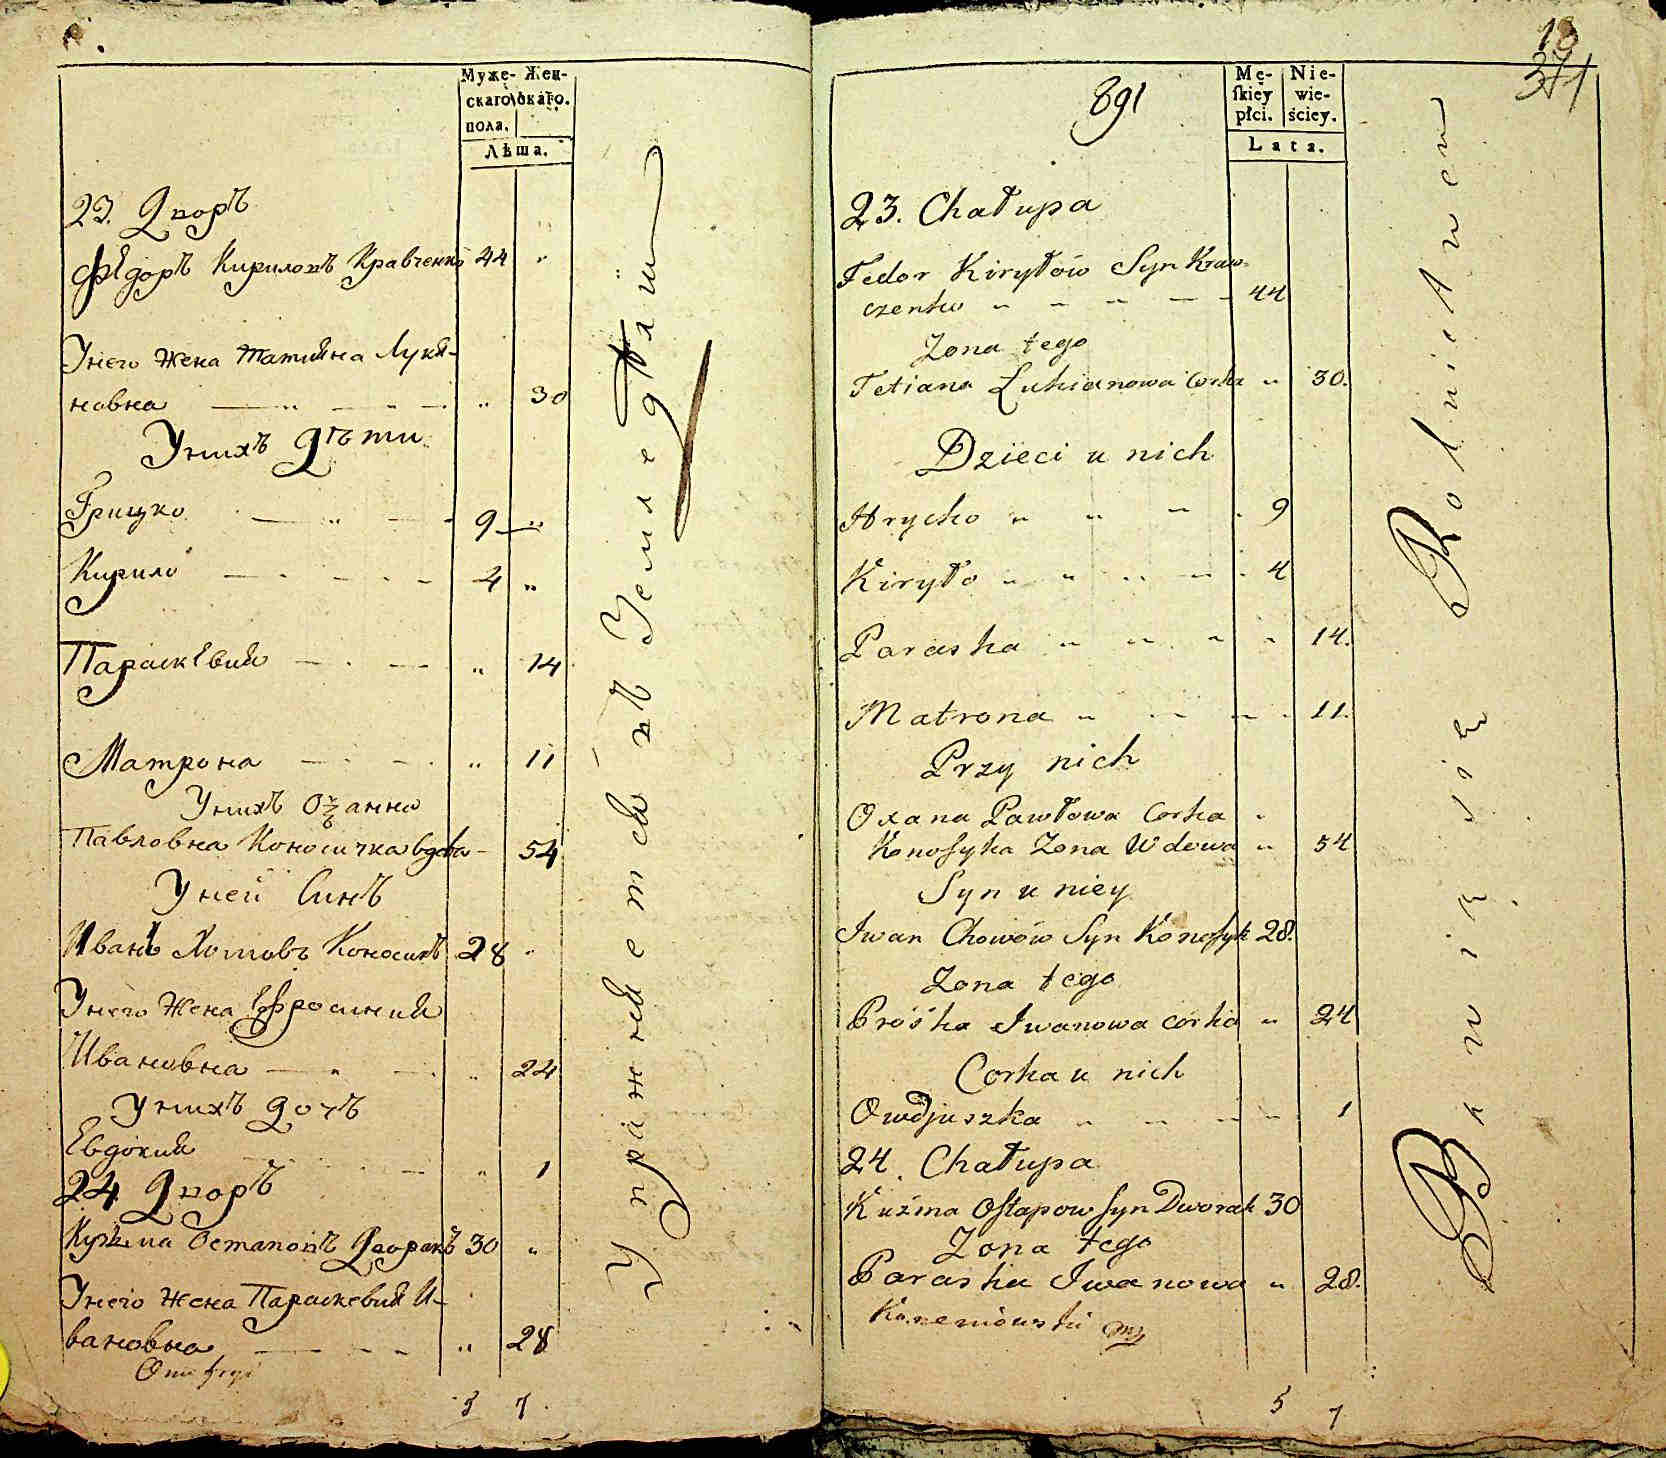 Муже- Жен-
скаго скаго.
пола.
Лѣта.
23. Дворъ
Федоръ Кириловъ Кравченко 44 "
Унего жена Татияна Лукия-
новна " 30
Унихъ дѣти
Грицко 9 "
Кирило 4 "
Параскевия " 14
Матрона " 11
Унихъ Оѯанна
Павловна Коносичка вдова 54
Уней Синъ
Иванъ Хотовъ Коносикъ 28 "
Унего жена Ефросиния
Ивановна " 24
Унихъ дочъ
Евдокия " 1
24 Дворъ
Кузьма Остаповъ Дворакъ 30 "
Унего жена Параскевия И-
вановна " 28
5 7
Упражняется въ Земледѣлии
18
371
891
Mę- Nie-
skiey wie-
płci. ściey.
Lata.
23. Chałupa
Fedor Kiryłów Syn Kraw-
czenko " 44
Zona tego
Tetiana Łukianowa Corka " 30.
Dzieci u nich
Hrycko " 9
Kiryło " 4
Paraska " 14.
Matrona " 11.
Przy nich
Oxana Pawłowa Corka
Konosyka Zona Wdowa " 54
Syn u niey
Iwan Chowów Syn Konosyk 28.
Zona tego
Prośka Iwanowa córka " 24
Corka u nich
Owdjuszka " 1
24. Chałupa
Kuźma Ostapow Syn Dworak 30
Zona tego
Paraska Iwanowa " 28.
5 7
Bawi się Rolnictwem